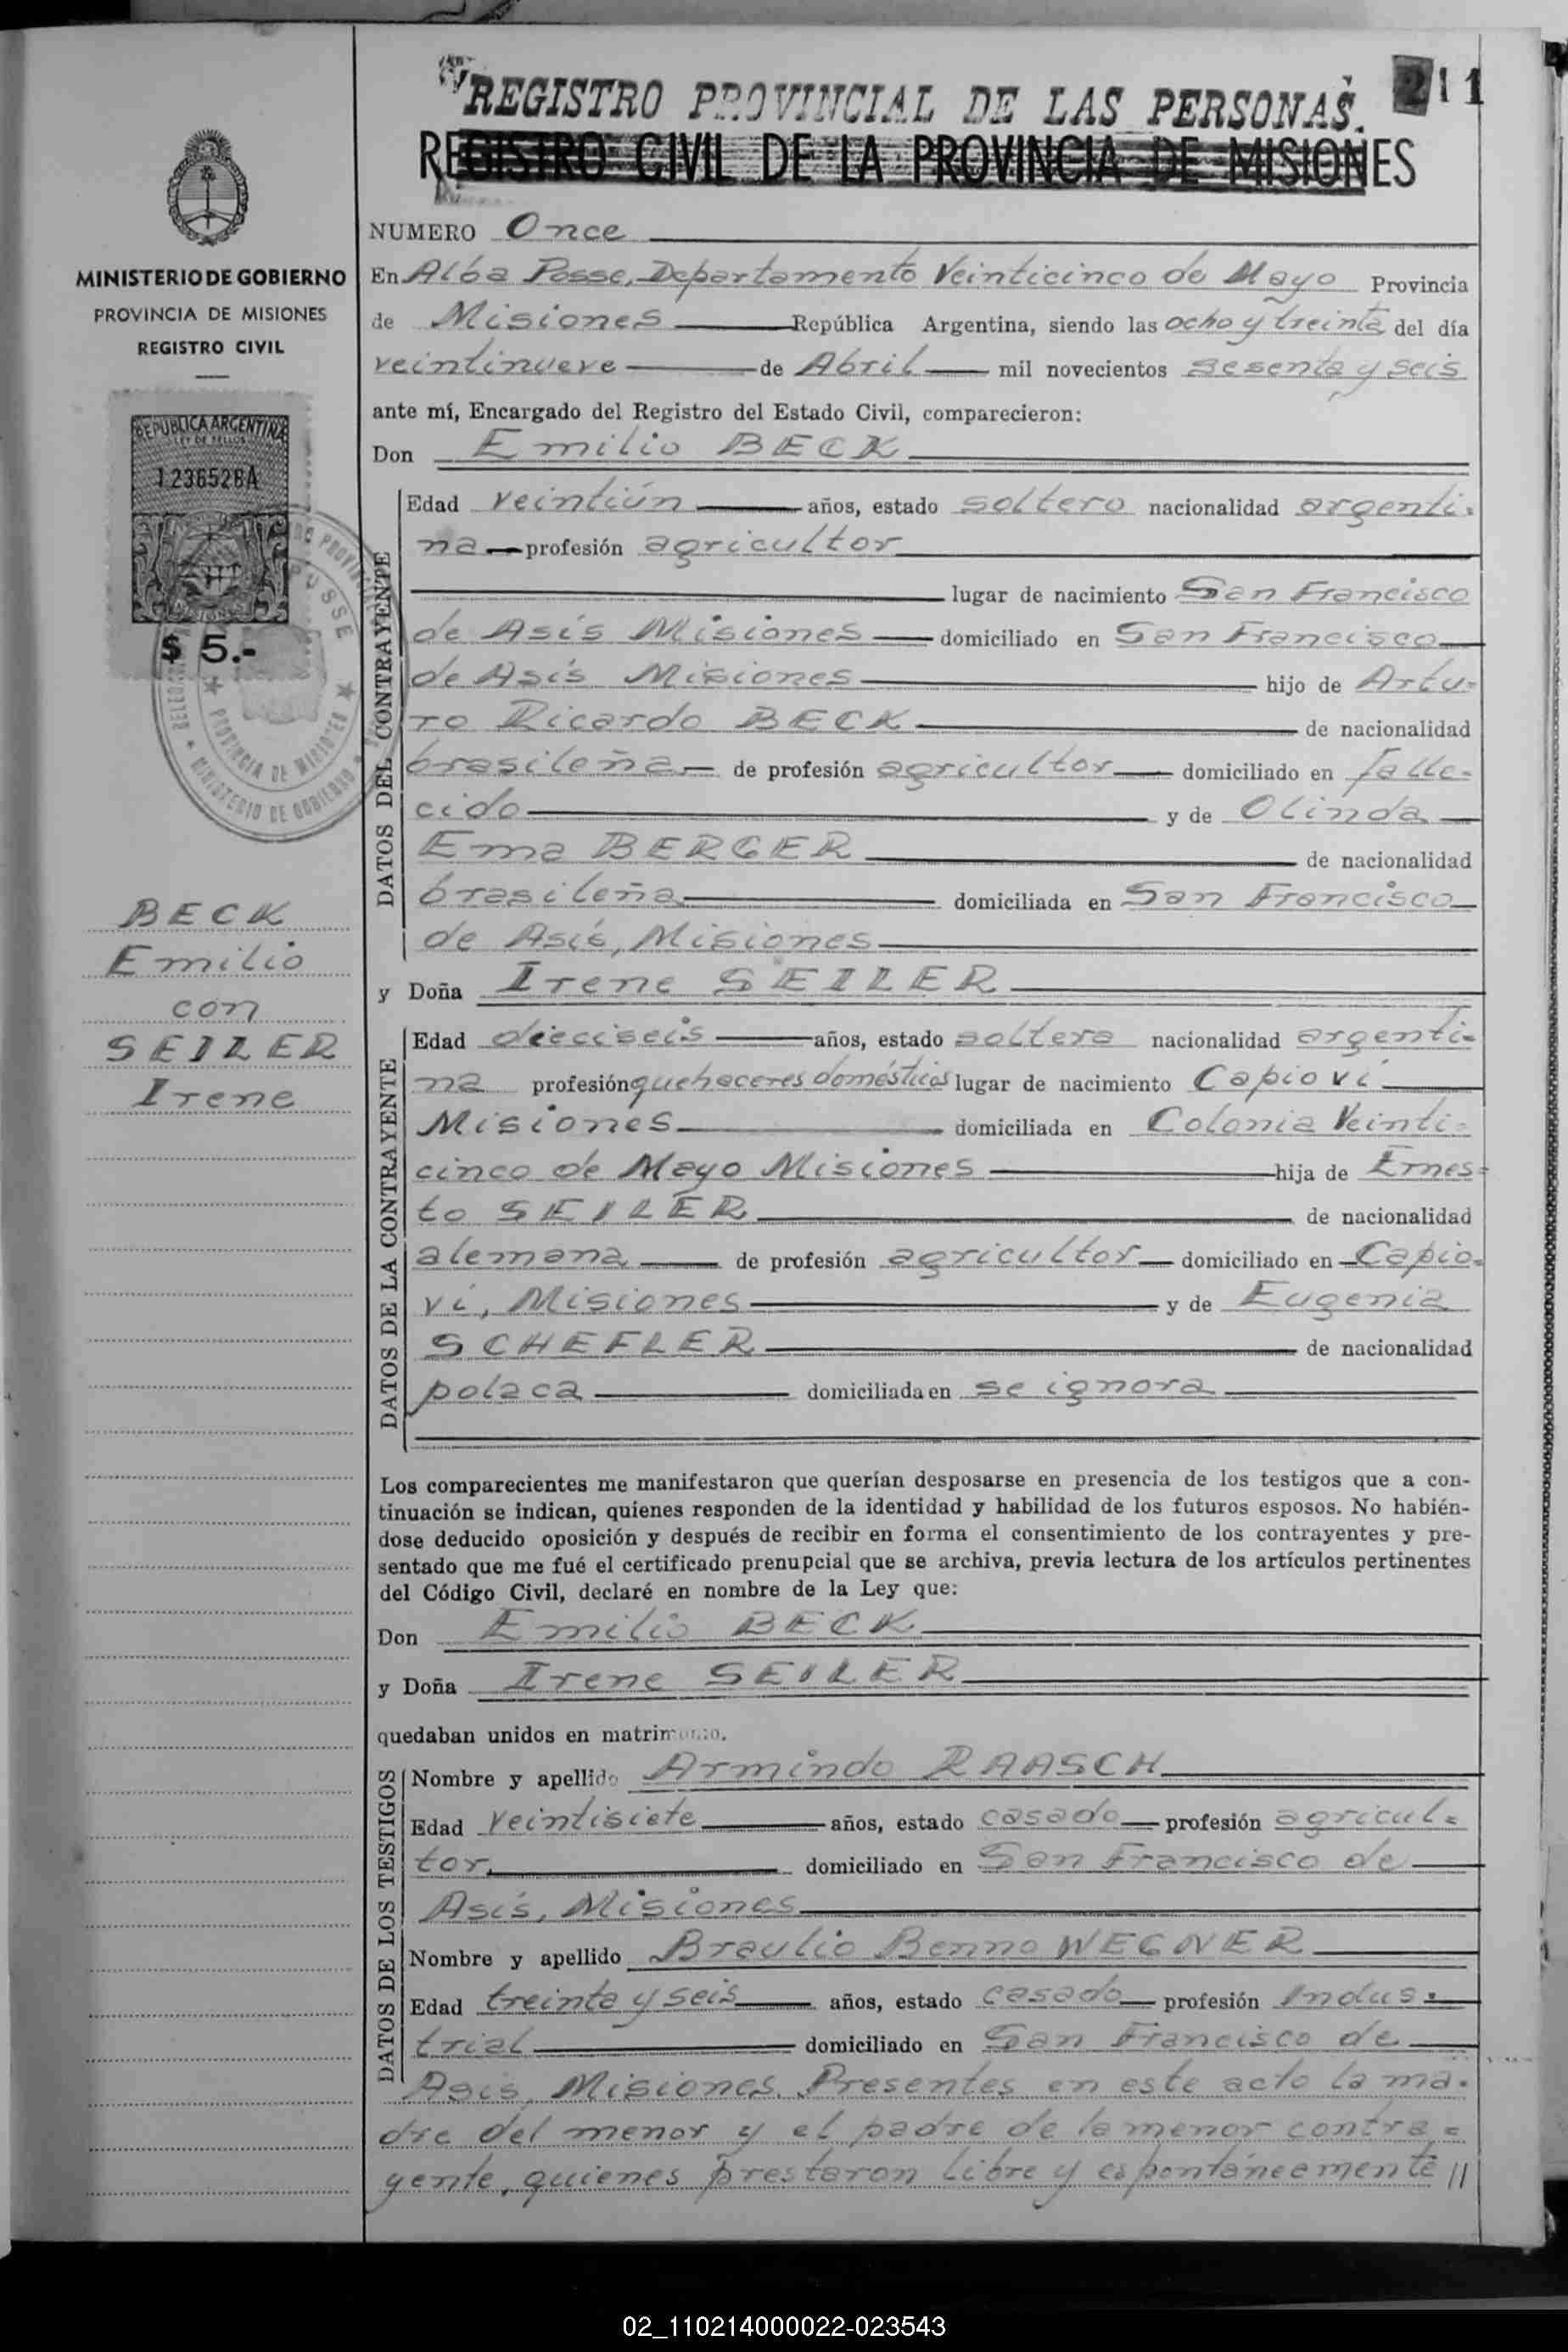 REGISTRO PROVINCIAL DE LAS PERSONAS.
211
REGISTRO CIVIL DE LA PROVINCIA DE MISIONES
MINISTERIO DE GOBIERNO
PROVINCIA DE MISIONES
REGISTRO CIVIL
REPUBLICA ARGENTINA
LEY DE SELLOS
1236528A
MISIONES
$ 5.-
PROVINCIA DE MISIONES
MINISTERIO DE GOBIERNO
BECK
Emilio
con
SEILER
Irene
NUMERO Once
En Alba Posse, Departamento Veinticinco de Mayo Provincia
de Misiones República Argentina, siendo las ocho y treinta del día
veintinueve de Abril mil novecientos sesenta y seis
ante mí, Encargado del Registro del Estado Civil, comparecieron:
Don Emilio BECK
DATOS DEL CONTRAYENTE
Edad veintiún años, estado soltero nacionalidad argenti-
na profesión agricultor
lugar de nacimiento San Francisco
de Asís Misiones domiciliado en San Francisco
de Asís Misiones hijo de Artu-
ro Ricardo BECK de nacionalidad
brasileña de profesión agricultor domiciliado en falle-
cido y de Olinda
Ema BERGER de nacionalidad
brasileña domiciliada en San Francisco
de Asís, Misiones
y Doña Irene SEILER
DATOS DE LA CONTRAYENTE
Edad dieciseis años, estado soltera nacionalidad argenti-
na profesión quehaceres domésticos lugar de nacimiento Capioví
Misiones domiciliada en Colonia Veinti-
cinco de Mayo Misiones hija de Ernes=
to SEILER de nacionalidad
alemana de profesión agricultor domiciliado en Capio-
ví, Misiones y de Eugenia
SCHEFLER de nacionalidad
polaca domiciliada en se ignora
Los comparecientes me manifestaron que querían desposarse en presencia de los testigos que a con-
tinuación se indican, quienes responden de la identidad y habilidad de los futuros esposos. No habién-
dose deducido oposición y después de recibir en forma el consentimiento de los contrayentes y pre-
sentado que me fué el certificado prenupcial que se archiva, previa lectura de los artículos pertinentes
del Código Civil, declaré en nombre de la Ley que:
Don Emilio BECK
y Doña Irene SEILER
quedaban unidos en matrimonio.
DATOS DE LOS TESTIGOS
Nombre y apellido Armindo RAASCH
Edad veintisiete años, estado casado profesión agricul=
tor, domiciliado en San Francisco de
Asís, Misiones
Nombre y apellido Braulio Benno WEGNER
Edad treinta y seis años, estado casado profesión Indus-
trial domiciliado en San Francisco de
Asís, Misiones. Presentes en este acto la ma-
dre del menor y el padre de la menor contra=
yente, quienes prestaron libre y espontáneamente //
02_110214000022-023543